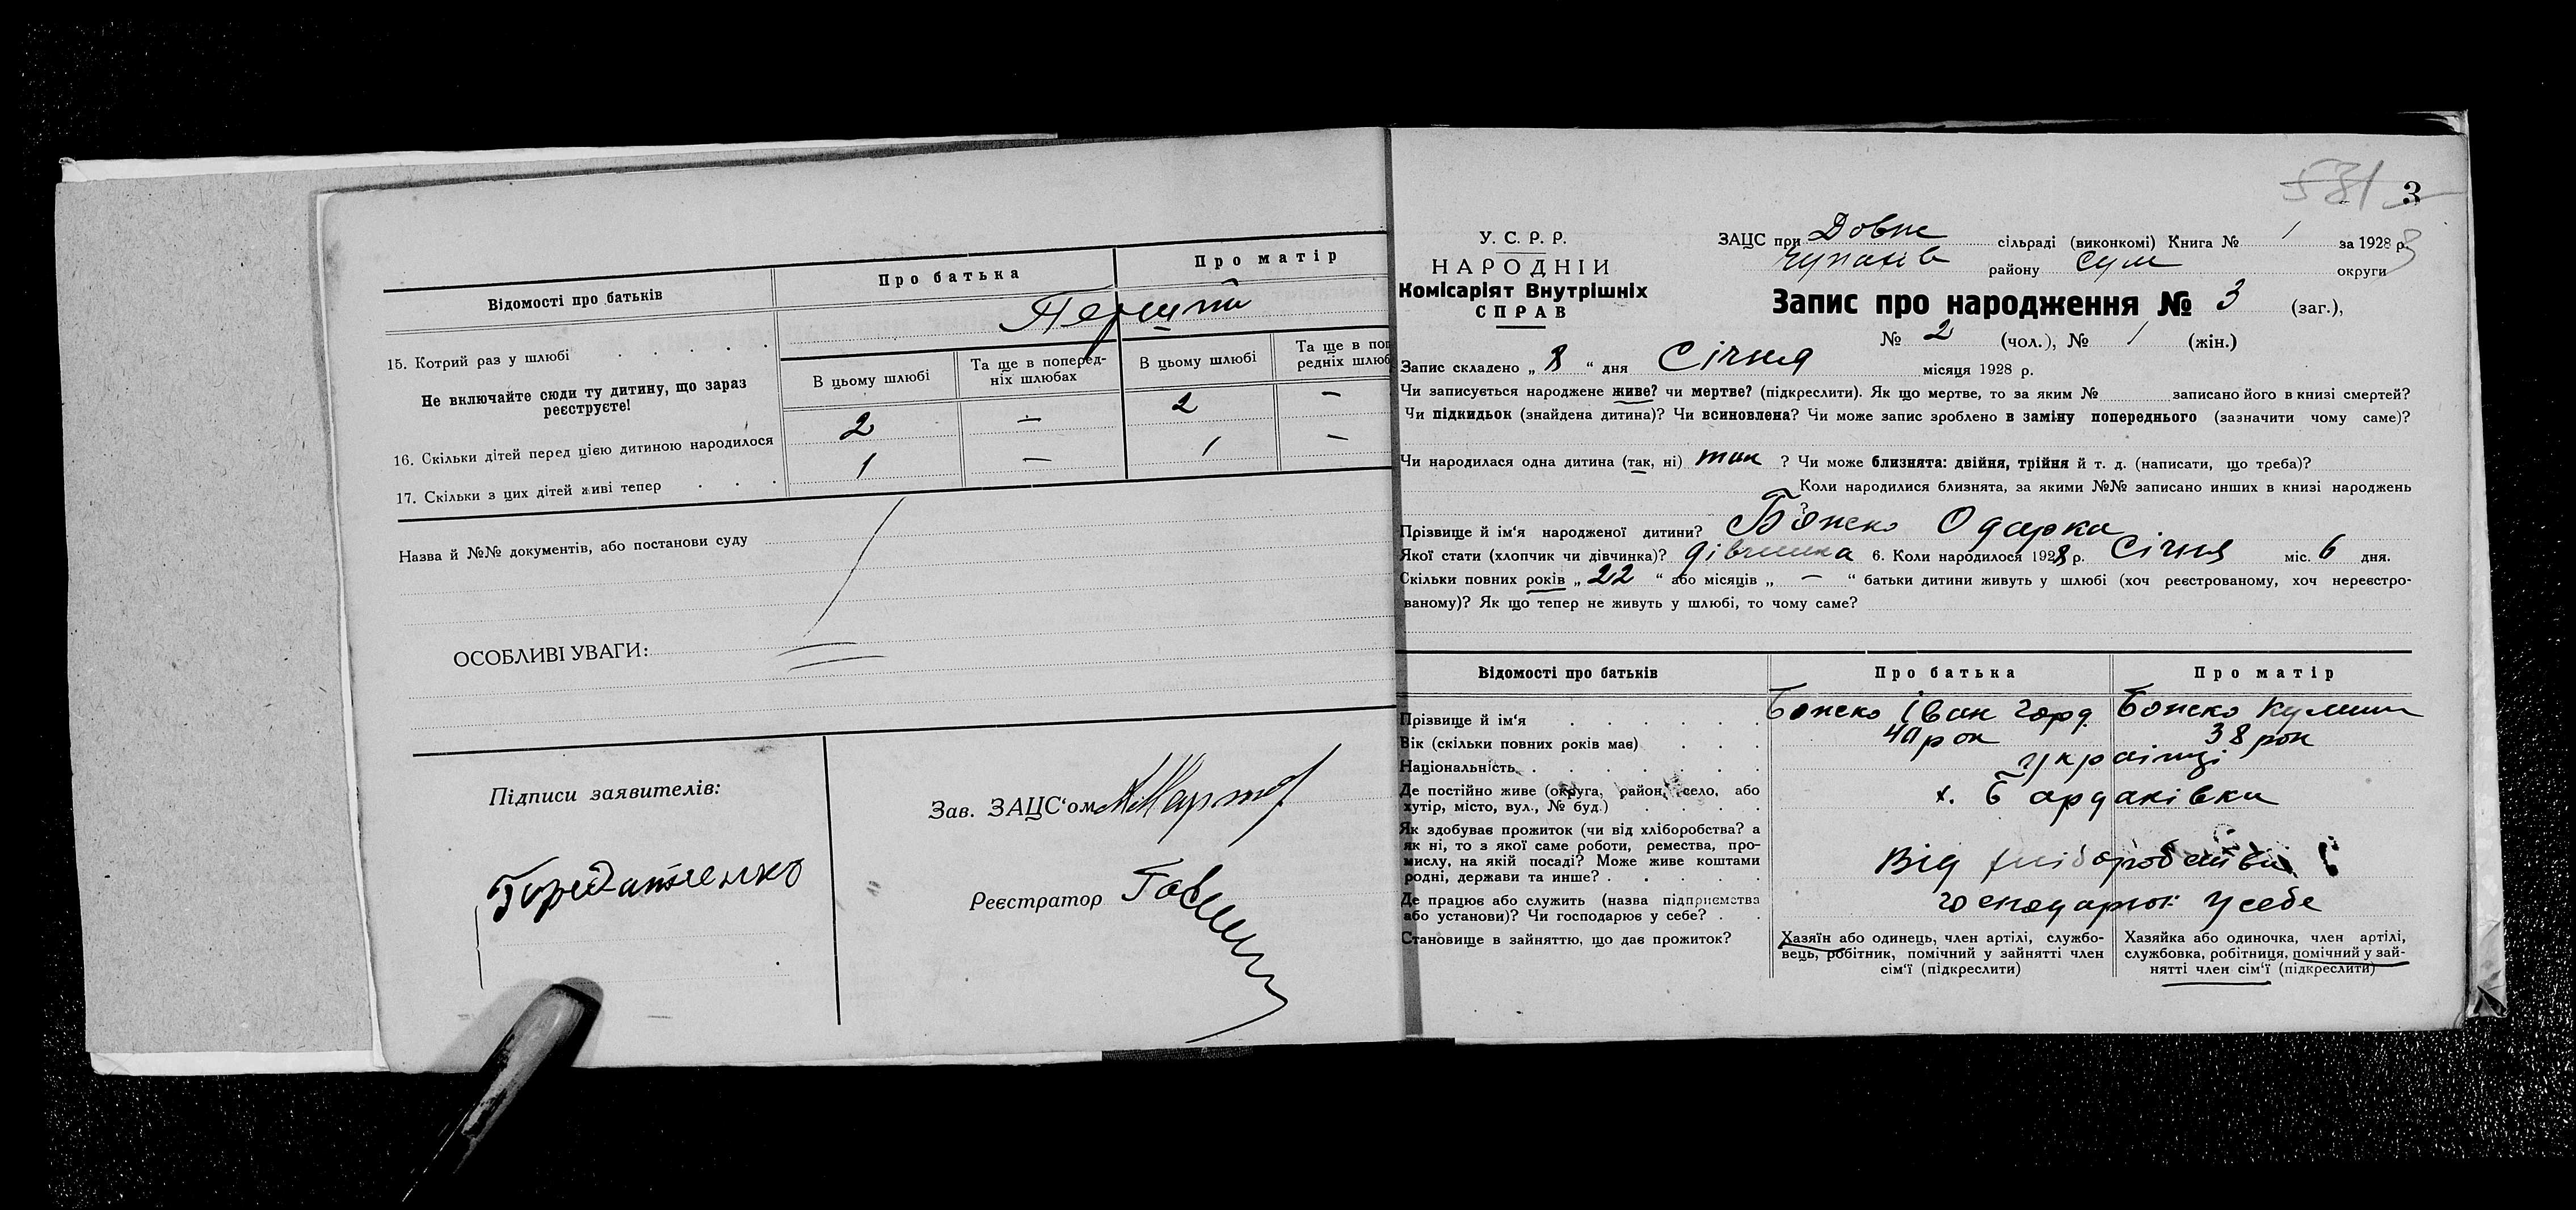 Відомості про батьків
Про батька
Про матір
15. Котрий раз у шлюбі
Перший
Не включайте сюди ту дитину, що зараз
реєструєте!
В цьому шлюбі
Та ще в поперед-
ніх шлюбах
В цьому шлюбі
Та ще в поп
редніх шлюб
16. Скільки дітей перед цією дитиною народилося
2 — 2 —
17. Скільки з цих дітей живі тепер
1 — 1 —
Назва й №№ документів, або постанови суду
ОСОБЛИВІ УВАГИ:
Підписи заявителів:
Зав. ЗАЦС'ом
Реєстратор
531 3
У. С. Р. Р.
НАРОДНІЙ
Комісаріят Внутрішніх
СПРАВ
ЗАЦС при Довж сільраді (виконкомі) Книга № 1 за 1928 р.
Чупахів району Сум округи
Запис про народження № 3 (заг.),
№ 2 (чол.), № 1 (жін.)
Запис складено „ 8 “ дня Січня місяця 1928 р.
Чи записується народжене живе? чи мертве? (підкреслити). Як що мертве, то за яким № записано його в книзі смертей?
Чи підкидьок (знайдена дитина)? Чи всиновлена? Чи може запис зроблено в заміну попереднього (зазначити чому саме)?
Чи народилася одна дитина (так, ні) так ? Чи може близнята: двійня, трійня й т. д. (написати, що треба)?
Коли народилися близнята, за якими №№ записано инших в книзі народжень
?
Прізвище й ім'я народженої дитини? Божко Одарка
Якої стати (хлопчик чи дівчинка)? дівчинка 6. Коли народилося 1928 р. Січня міс. 6 дня.
Скільки повних років „ 22 “ або місяців „ — “ батьки дитини живуть у шлюбі (хоч реєстрованому, хоч нереєстро-
ваному)? Як що тепер не живуть у шлюбі, то чому саме?
Відомості про батьків
Про батька
Про матір
Прізвище й ім'я
Божко Іван Горд
Божко
Вік (скільки повних років має)
рок
38 рок
Національність
українці
Де постійно живе (округа, район, село, або
хутір, місто, вул., № буд.)
х. Бардаківка
Як здобуває прожиток (чи від хліборобства? а
як ні, то з якої саме роботи, ремества, про-
мислу, на якій посаді? Може живе коштами
родні, держави та инше?
Від хліборобства
Де працює або служить (назва підприємства
або установи)? Чи господарює у себе?
господарює у себе
Становище в зайняттю, що дає прожиток?
Хазяїн або одинець, член артілі, службо-
вець, робітник, помічний у зайнятті член
сім'ї (підкреслити)
Хазяйка або одиночка, член артілі,
службовка, робітниця, помічний у зай-
нятті член сім'ї (підкреслити)